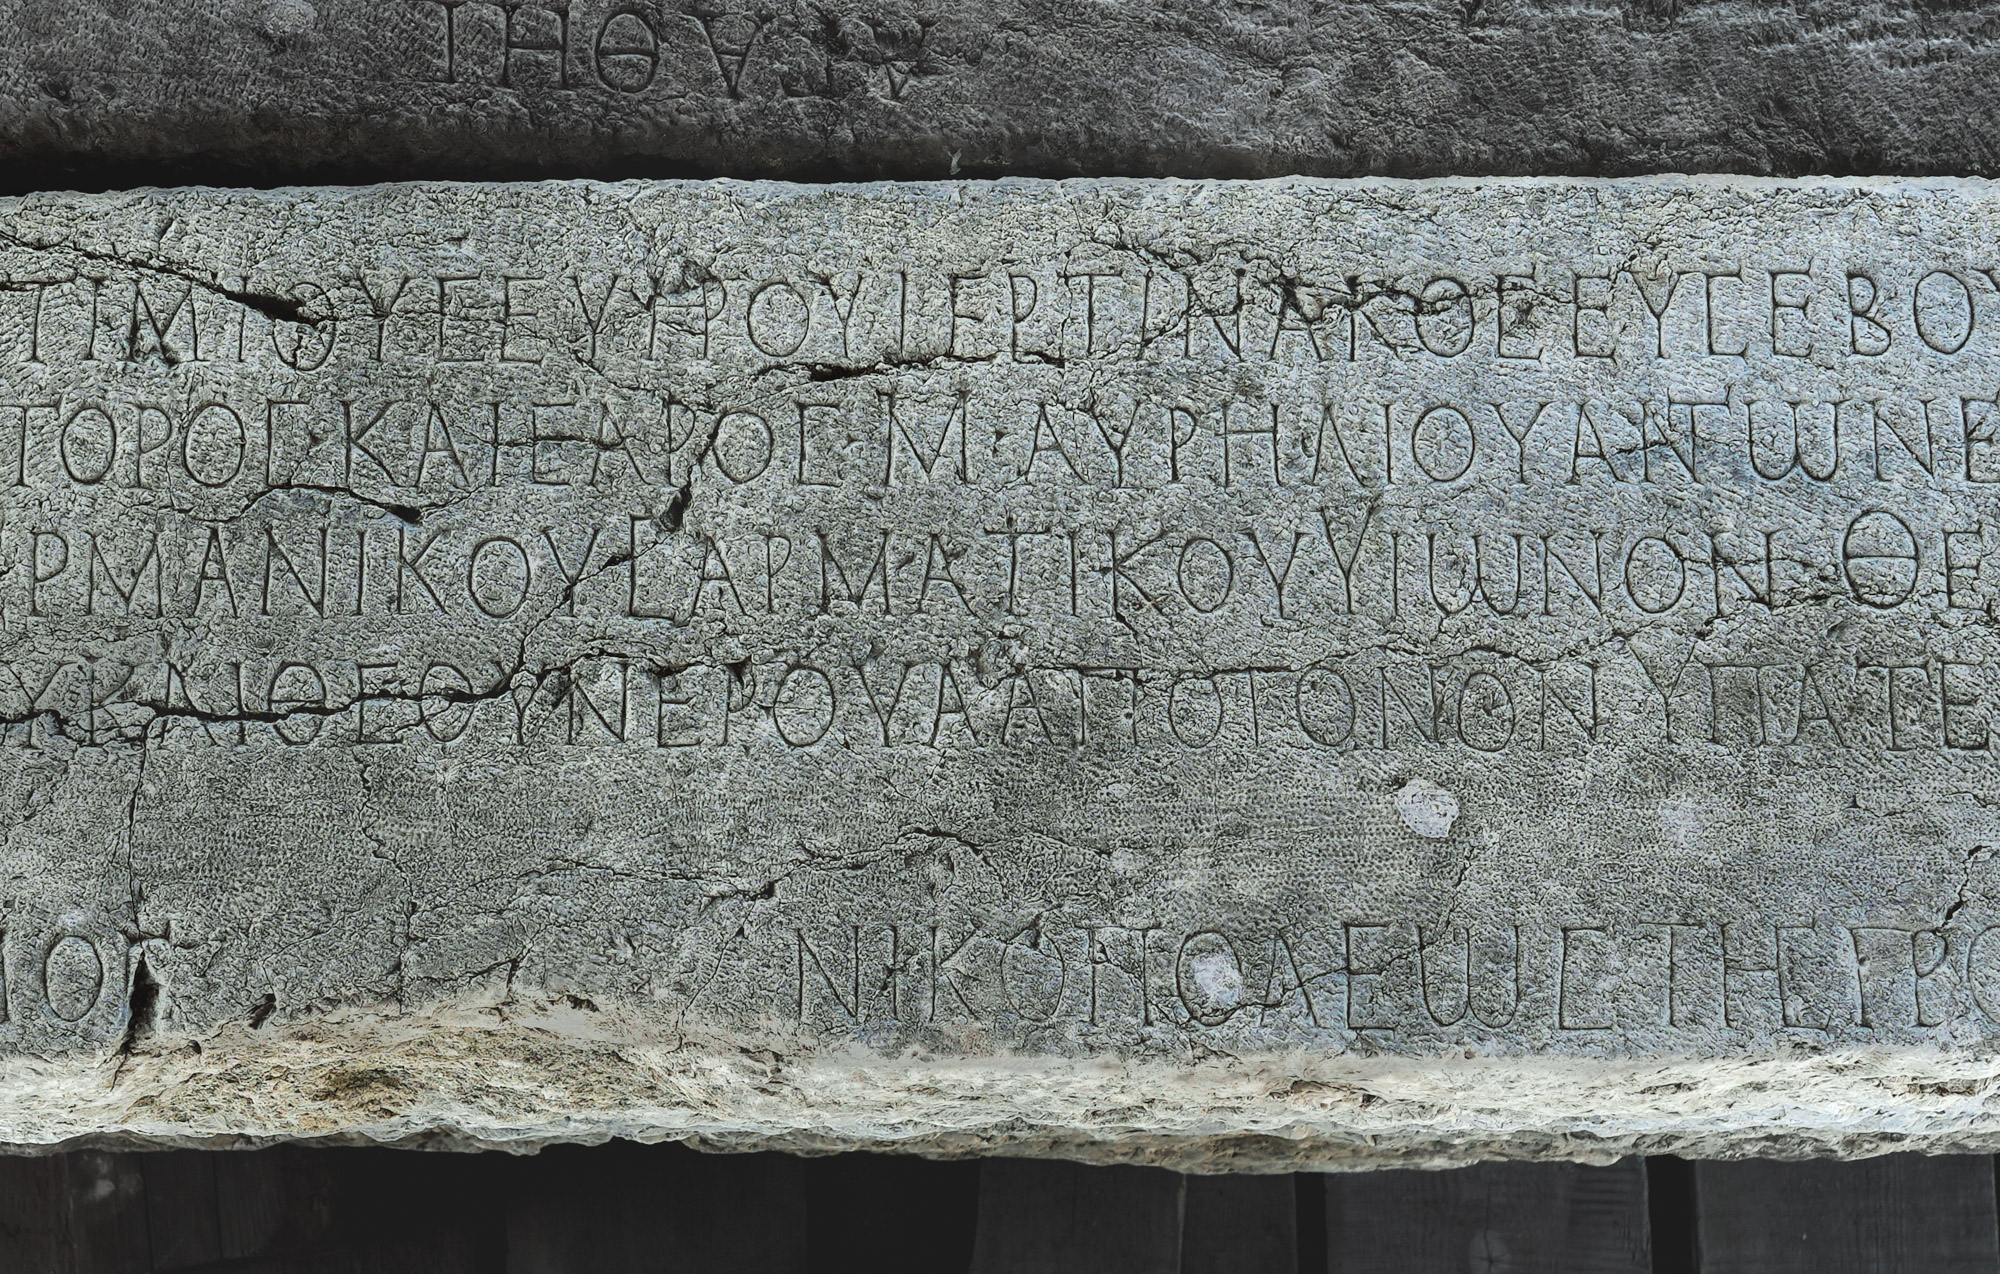 ΤΙΜΙΟΥΣΕΥΗΡΟΥΠΕΡΤΙΝΑΚΟΣΕΥΣΕΒΟΥ
ΤΟΡΟΣ·ΚΑΙΣΑΡΟΣ·Μ·ΑΥΡΗΛΙΟΥΑΝΤΩΝΕ
ΡΜΑΝΙΚΟΥΣΑΡΜΑΤΙΚΟΥΥΙΩΝΟΝ·ΘΕ
ΥΚΑΙΘΕΟΥΝΕΡΟΥΑΑΠΟΓΟΝΟΝΥΠΑΤΕ
ΝΙΚΟΠΟΛΕΩΣΤΗΣΠΡΟ